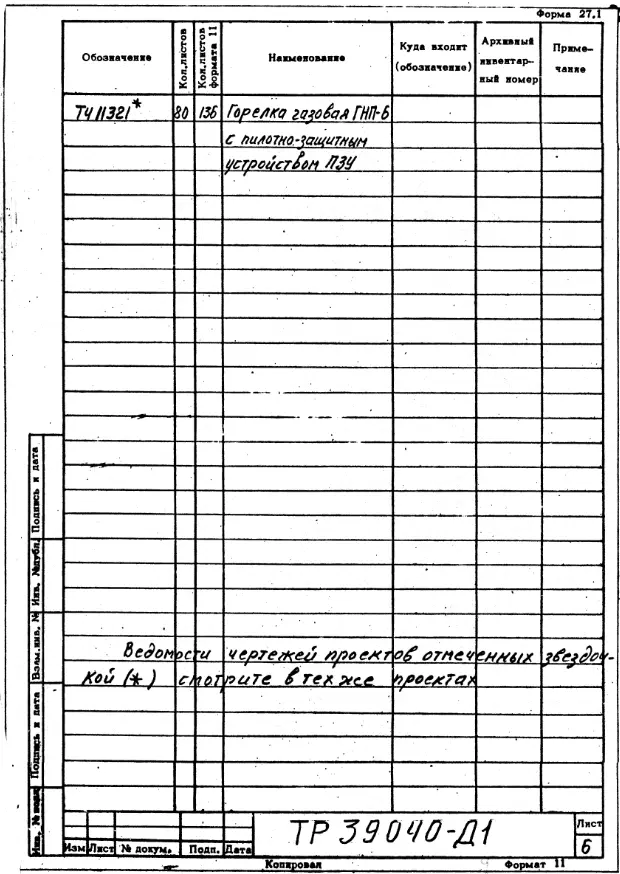 Форма 27.1
Обозначение
Кол.листов
Кол.листов формата 11
Наименование
Куда входит (обозначение)
Архивный инвентар- ный номер
Приме- чание
ТЧ 11321* 80 136 Горелка газовая ГНП-6
с пилотно-защитным
устройством ПЗУ
Ведомости чертежей проектов отмеченных звездоч-
кой (*) смотрите в тех же проектах
Инв. № Подпись и дата Взам.инв. № Инв. №дубл. Подпись и дата
Изм Лист № докум. Подп. Дата
ТР 39040-Д1
Лист
6
Копировал Формат 11